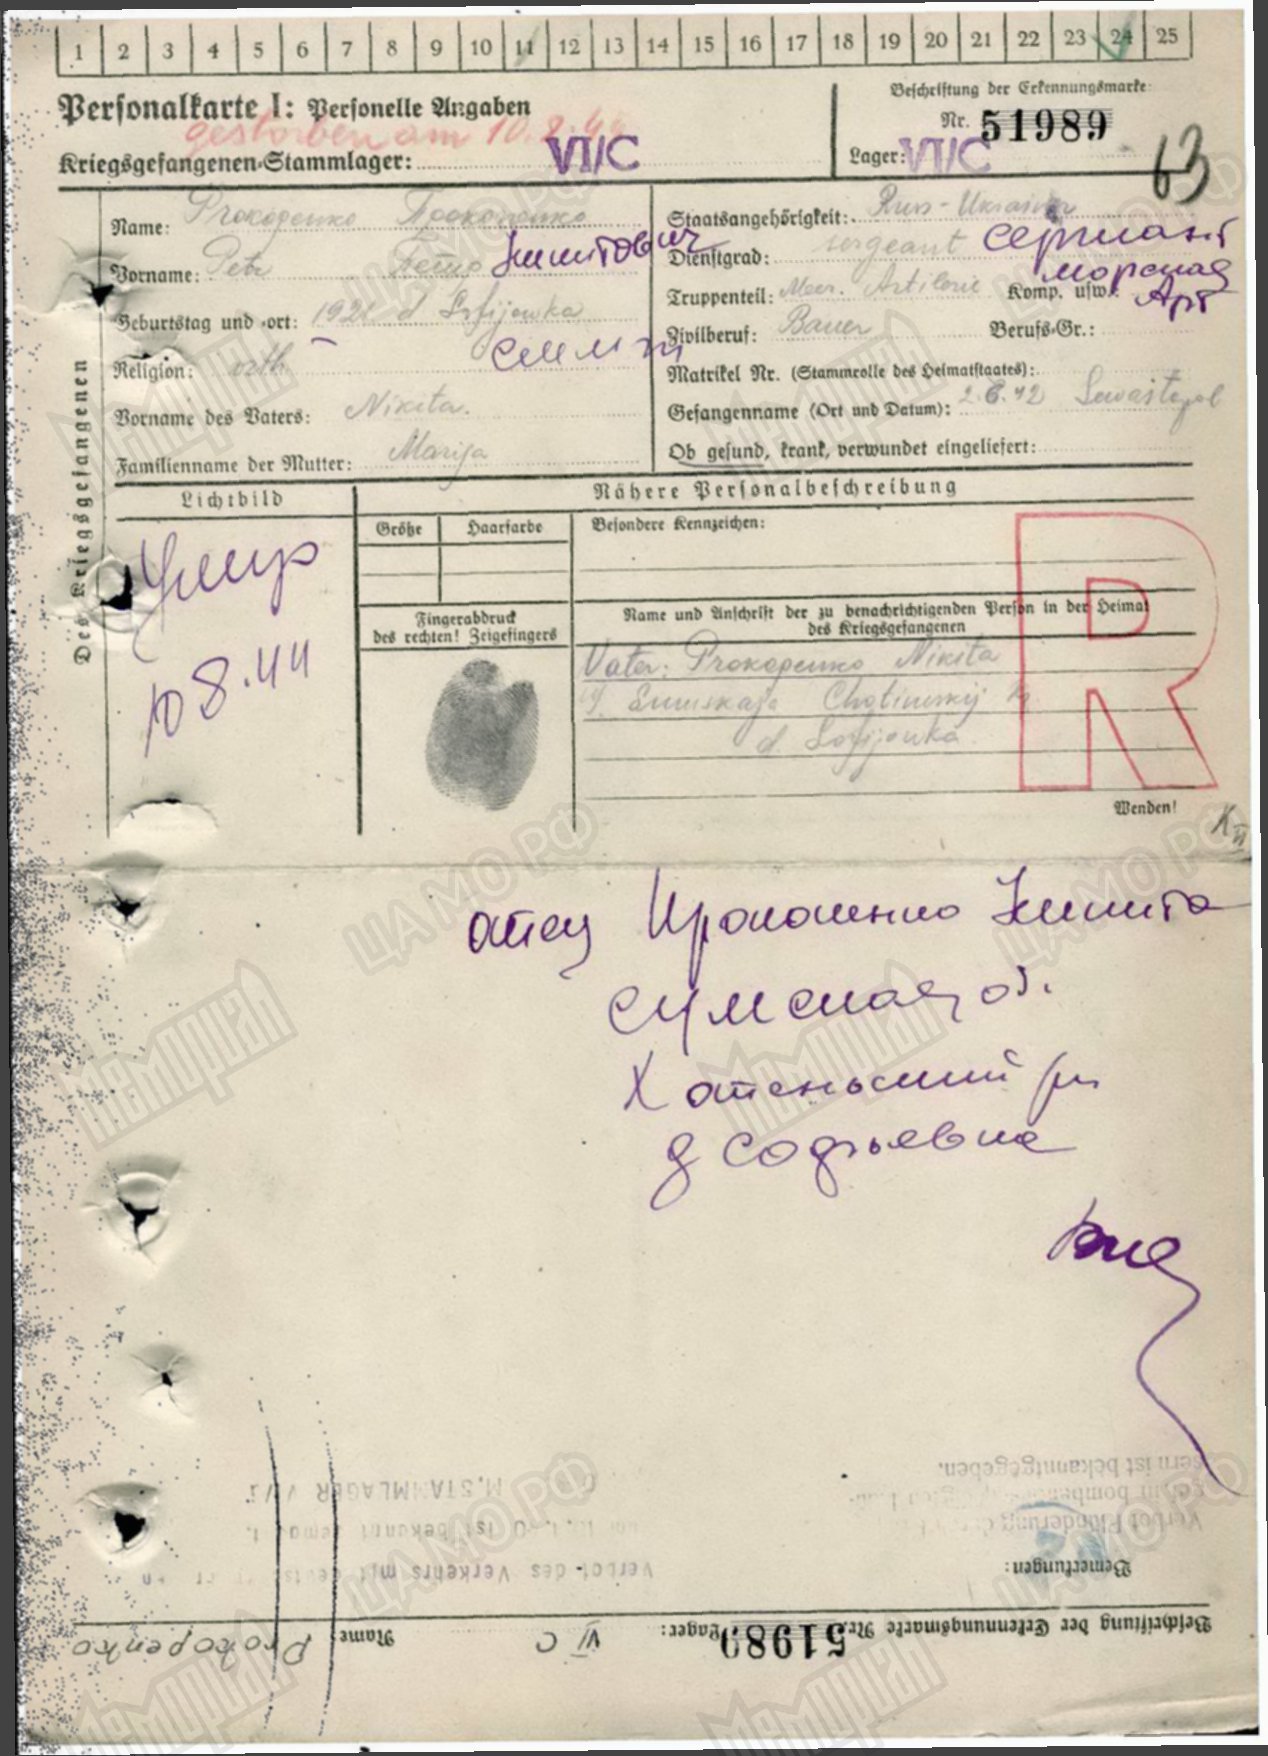 1 2 3 4 5 6 7 8 9 10 11 12 13 14 15 16 17 18 19 20 21 22 23 24 25
Personalkarte I: Personelle Angaben
gestorben am 10.8.44
Kriegsgefangenen-Stammlager: VI/C
Beschriftung der Erkennungsmarke:
Nr. 51989
Lager: VI/C
63
Des Kriegsgefangenen
Name: Prokopenko Прокопенко
Vorname: Petr Петр Никитович
Geburtstag und -ort: 1921 d Sofijowka
Religion: orth
Vorname des Vaters: Nikita.
Familienname der Mutter: Marija
Staatsangehörigkeit: Russ-Ukrainer
Dienstgrad: sergeant сержант
Truppenteil: Meer. Artilerie Komp. usw.: морская Арт
Zivilberuf: Bauer Berufs-Gr.:
Matrikel Nr. (Stammrolle des Heimatstaates):
Gefangenname (Ort und Datum): 2.6.42 Sewastopol
Ob gesund, krank, verwundet eingeliefert:
Lichtbild
Умер
10 8.44
Nähere Personalbeschreibung
Größe Haarfarbe Besondere Kennzeichen:
Fingerabdruck
des rechten! Zeigefingers
Name und Anschrift der zu benachrichtigenden Person in der Heimat
des Kriegsgefangenen
Vater: Prokopenko Nikita
Sumskaja Chotinskij
d Sofijowka
R
Wenden!
отец Прокопенко Никита
Сумская об.
Хотеньский рн
д Софьевка
Bemerkungen:
Beschriftung der Erkennungsmarke Nr. 51989 Lager: VI C Name: Prokopenko